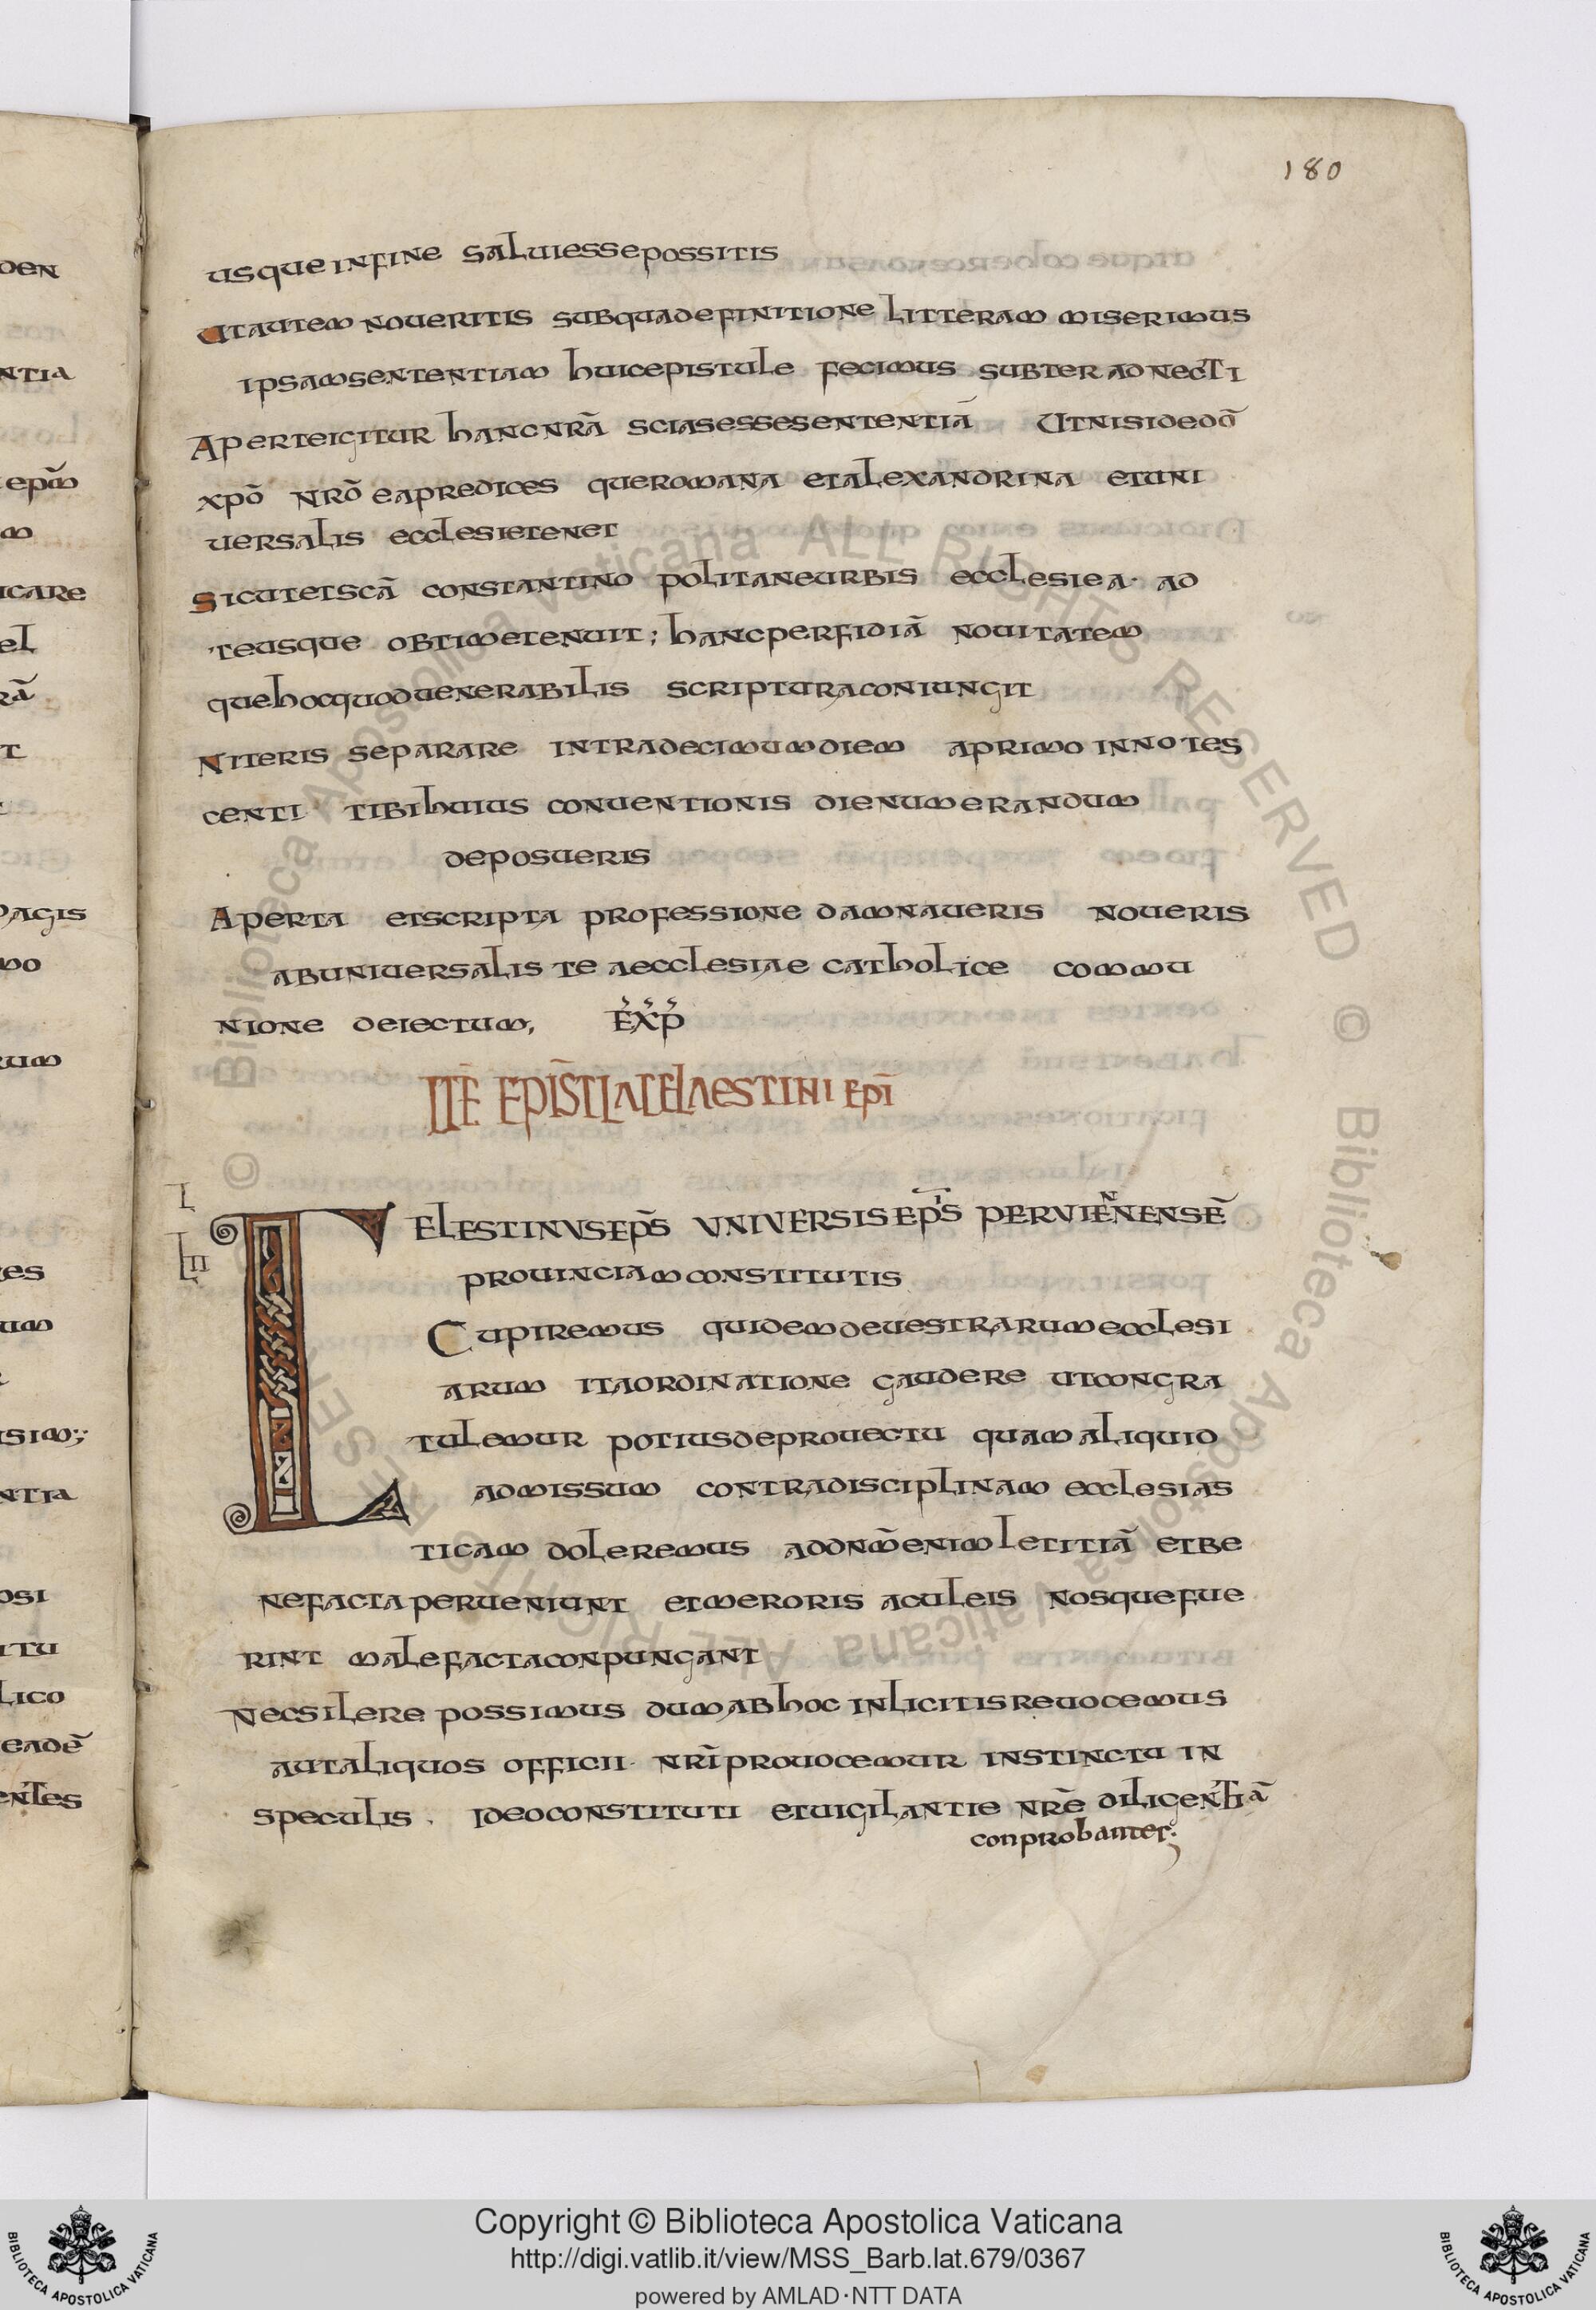 180
usque in fine salui esse possitis
Ut autem noueritis sub qua definitione litteram miserimus
ipsam sententiam huic epistule fecimus subter adnecti
Aperte igitur hanc nr̄ā scias esse sententiā Ut nisi de dō
xpō nr̄ō ea predices que romana et alexandrina et uni
uersalis ecclesie tenet
Sicut et sc̄ā constantinopolitane urbis ecclesie a· ad
te usque obtime tenuit; hanc perfidiā nouitatem
que hoc quod uenerabilis scriptura coniungit
Niteris separare intra decimum diem a primo innotes
centi tibi huius conuentionis die numerandum
deposueris
Aperta et scripta professione damnaueris noueris
ab uniuersalis te aecclesiae catholice commu
nione deiectum, EXP
ITĒ EPIST̄LA CELAESTINI EPĪ
L
LII
CELESTINUS EP̄S UNIVERSIS EP̄IS PER VIENNENSĒ
prouinciam constitutis
Cupiremus quidem de uestrarum ecclesi
arum ita ordinatione gaudere ut congra
tulemur potius de prouectu quam aliquid
admissum contra disciplinam ecclesias
ticam doleremus ad dn̄m enim letitiā et be
nefacta perueniunt et meroris aculeis nos que fue
rint malefacta conpungant
Nec silere possimus dum ab hoc inlicitis reuocemus
aut aliquos officii· nr̄i prouocemur instinctu in
speculis . Ideo constituti et uigilantie nr̄ē diligentiā
conprobantes·;
den
ntia
ep̄m
m
icare
el
r̄ā
t
pagis
mo
rum
es
um
isim;
ntia
osi
itu
lico
eadē
entes
© Biblioteca Apostolica Vaticana ALL RIGHTS RESERVED © Biblioteca Apostolica Vaticana ALL RIGHTS RESERVED
Copyright © Biblioteca Apostolica Vaticana
http://digi.vatlib.it/view/MSS_Barb.lat.679/0367
powered by AMLAD·NTT DATA
BIBLIOTECA APOSTOLICA VATICANA
BIBLIOTECA APOSTOLICA VATICANA